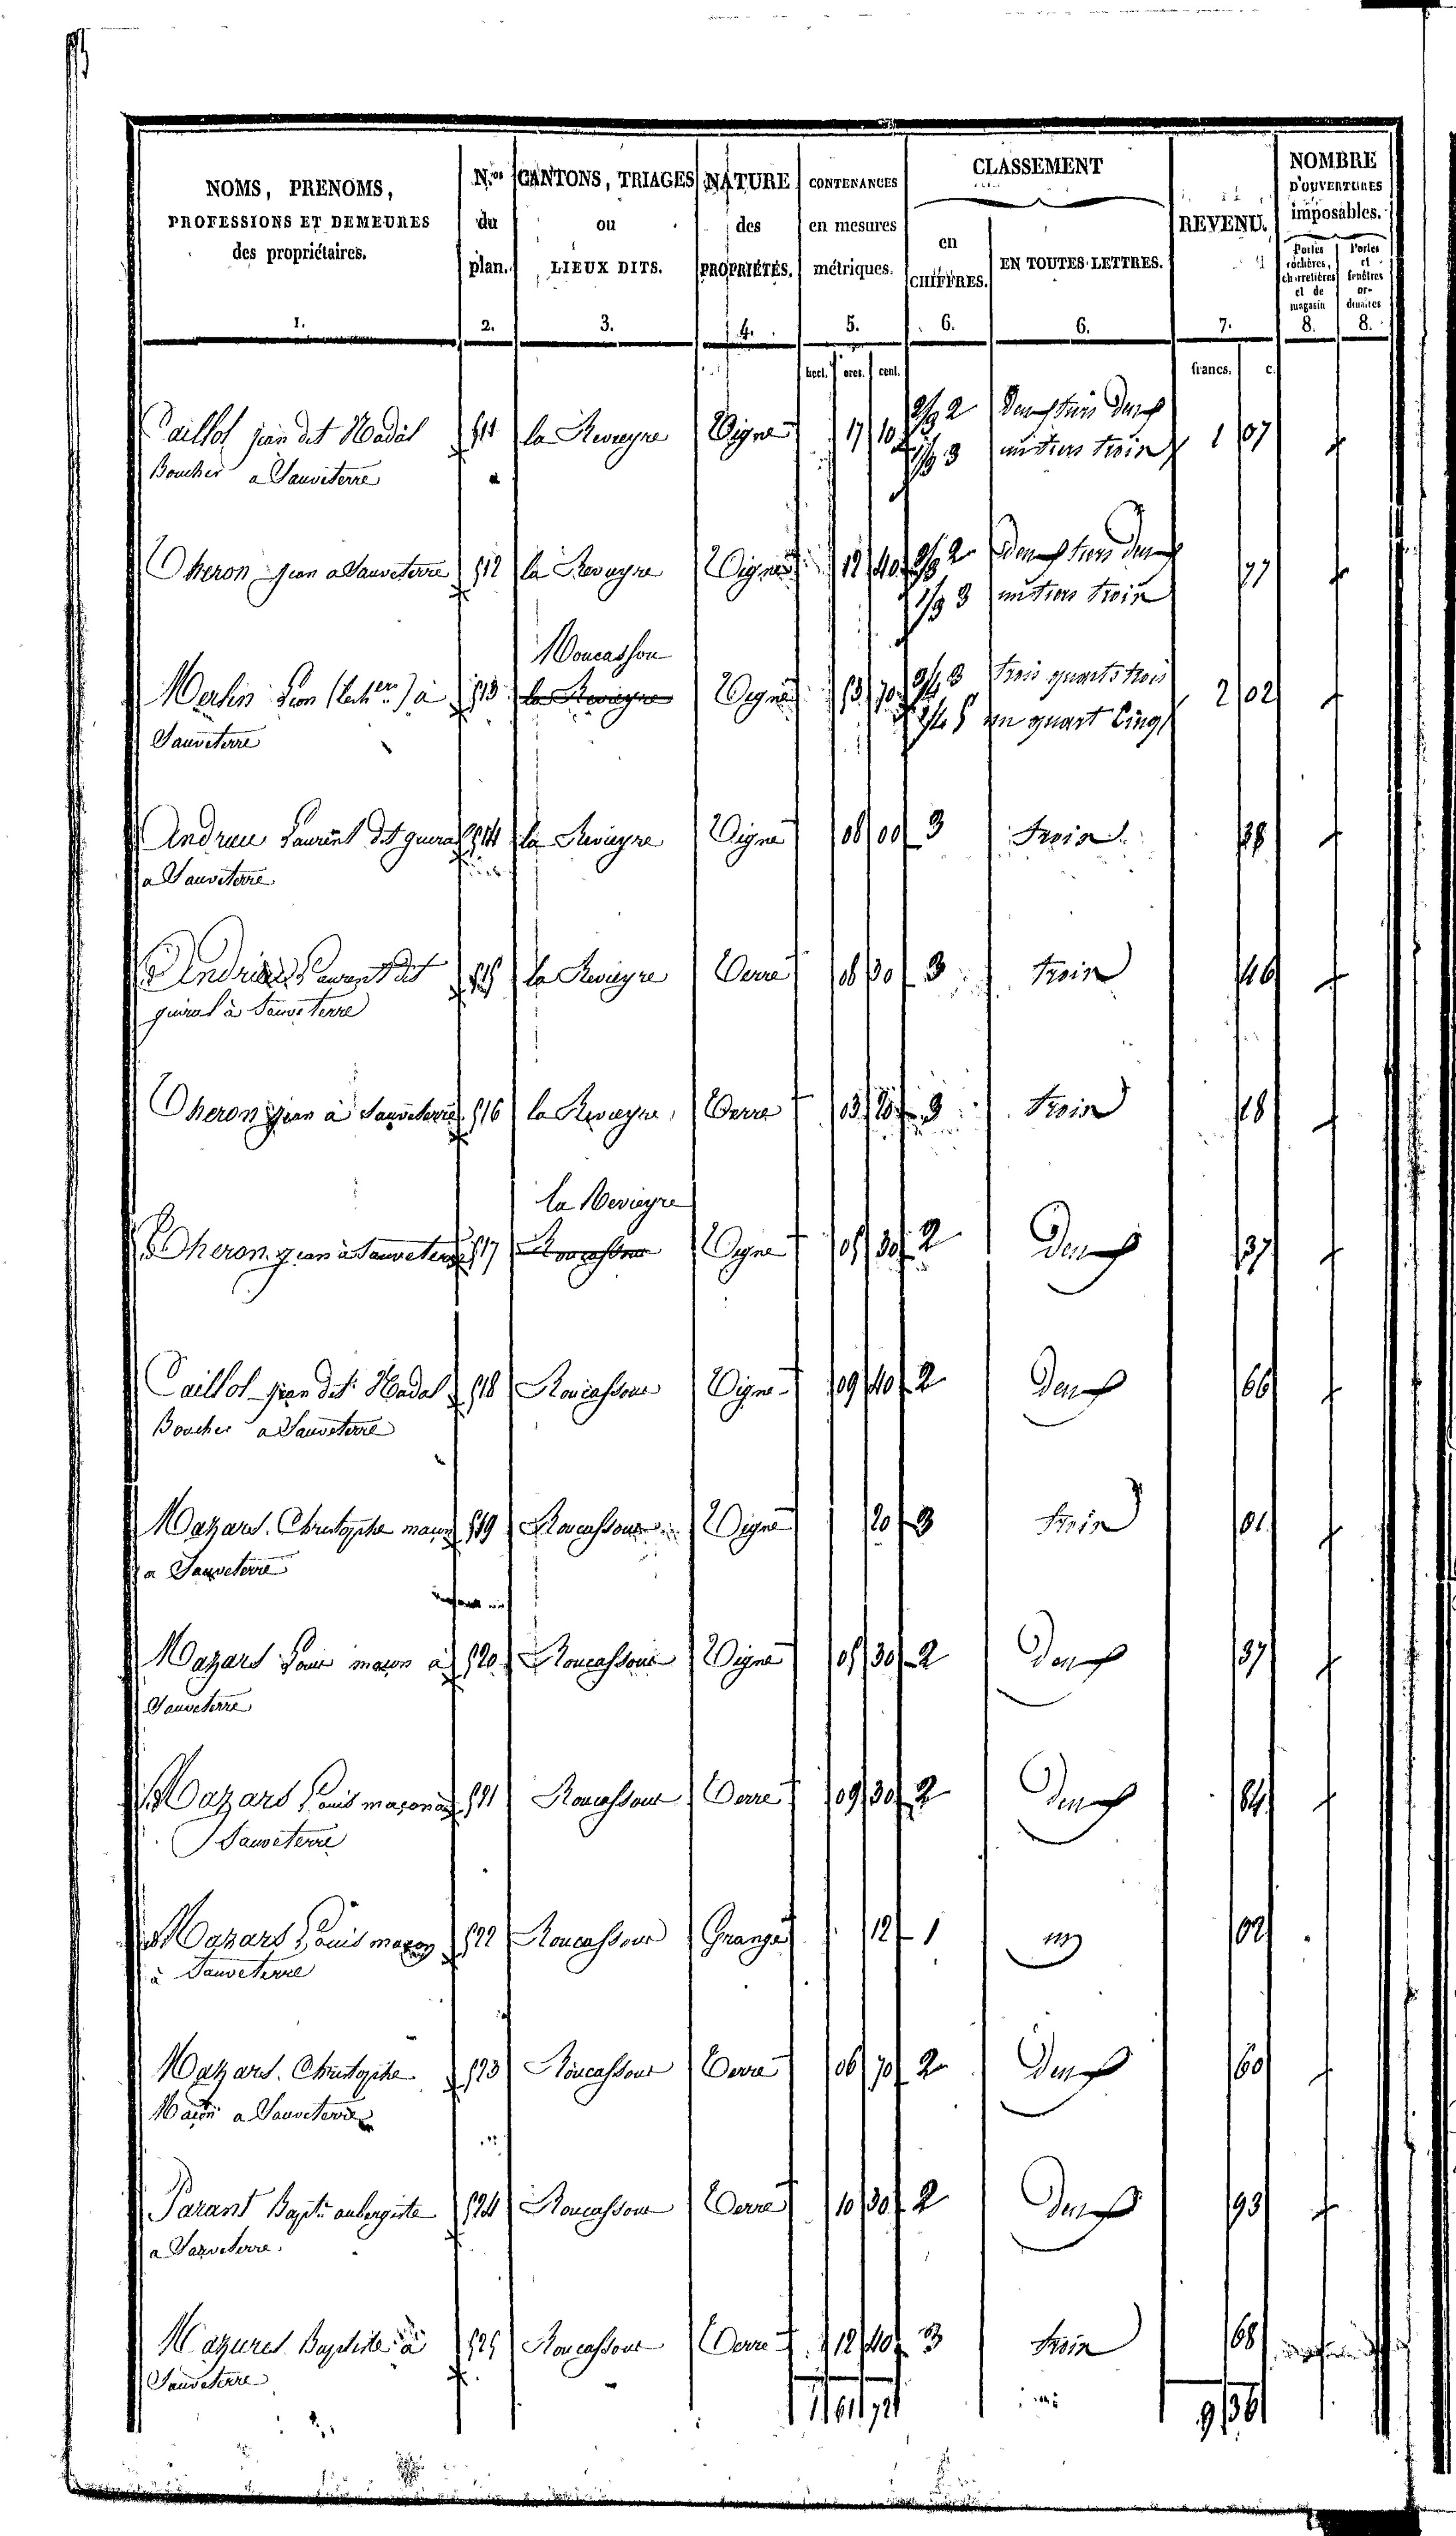 NOMS, PRENOMS,
PROFESSIONS ET DEMEURES
des propriétaires.
1.
N.os
du
plan.
2.
CANTONS, TRIAGES
ou
LIEUX DITS.
3.
NATURE
des
PROPRIÉTÉS.
4.
CONTENANCES
en mesures
métriques.
5.
CLASSEMENT
en
CHIFFRES.
6.
EN TOUTES LETTRES.
6.
REVENU.
7.
NOMBRE
D'OUVERTURES
imposables.
Portes cochères, charretières et de magasin
8.
Portes et fenêtres ordinaires
8.
hect. ares. cent. francs. c.
Caillol jean dit Nadal 511 la Revieyre Vigne 17 10 2/3 2 Deux tiers deux 1 07
Boucher a Sauveterre 1/3 3 un tiers trois
Theron jean a Sauveterre 512 la Revieyre Vigne 12 40 2/3 2 Deux tiers deux 77
1/3 3 un tiers trois
Roucassou
Merlin 513 la Revieyre Vigne 53 70 3/4 3 trois quarts trois 2 02
Sauveterre 1/4 5 un quart Cinq
Andrieu Laurent dit guiral 514 la Revieyre Vigne 08 00 3 trois 38
a Sauveterre
Andrieu Laurent dit 515 la Revieyre Terre 08 30 3 trois 46
guiral à Sauveterre
Theron jean à Sauveterre 516 la Revieyre Terre 03 20 3 trois 18
la Revieyre
Theron jean à Sauveterre 517 Roucassou Vigne 05 30 2 Deux 37
Caillol jean dit Nadal 518 Roucassou Vigne 09 40 2 Deux 66
Boucher a Sauveterre
Mazars Christophe maçon 519 Roucassou Vigne 20 3 trois 01
a Sauveterre
Mazars Louis maçon à 520 Roucassou Vigne 05 30 2 Deux 37
Sauveterre
Mazars Louis maçon à 521 Roucassou Terre 09 30 2 Deux 84
Sauveterre
Mazars Louis maçon 522 Roucassou Grange 12 1 un 02
à Sauveterre
Mazars Christophe 523 Roucassou Terre 06 70 2 Deux 60
Maçon a Sauveterre
Parant Bapte aubergiste 524 Roucassou Terre 10 30 2 Deux 93
a Sauveterre
Mazures Baptiste à 525 Roucassou Terre 12 40 3 trois 68
Sauveterre
1 61 72 9 36